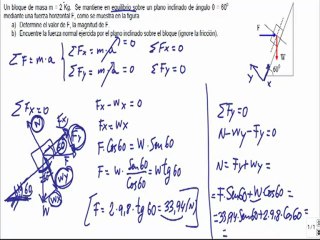 Un bloque de masa m = 2 Kg. Se mantiene en equilibrio sobre un plano inclinado de ángulo θ = 60°
mediante una fuerza horizontal F, como se muestra en la figura
a) Determina el valor de F, la magnitud de F
b) Encuentre la fuerza normal ejercida por el plano inclinado sobre el bloque (ignore la fricción).
F
W
60°
Y
X
ΣF = m·a
ΣFx = m·a 0
ΣFy = m·a 0
ΣFx = 0
ΣFy = 0
ΣFx = 0
N
Fx
F
Fy
60
Wx
Wy
W
Fx - Wx = 0
Fx = Wx
F·Cos60 = W·Sen60
F = W· Sen60 / Cos60 = W tg 60
F = 2·9,8·tg 60 = 33,94 (N)
ΣFy = 0
N - Wy - Fy = 0
N = Fy + Wy =
= F·Sen60 + W·Cos60 =
= 33,94·Sen60 + 2·9,8·Cos60 =
1/1